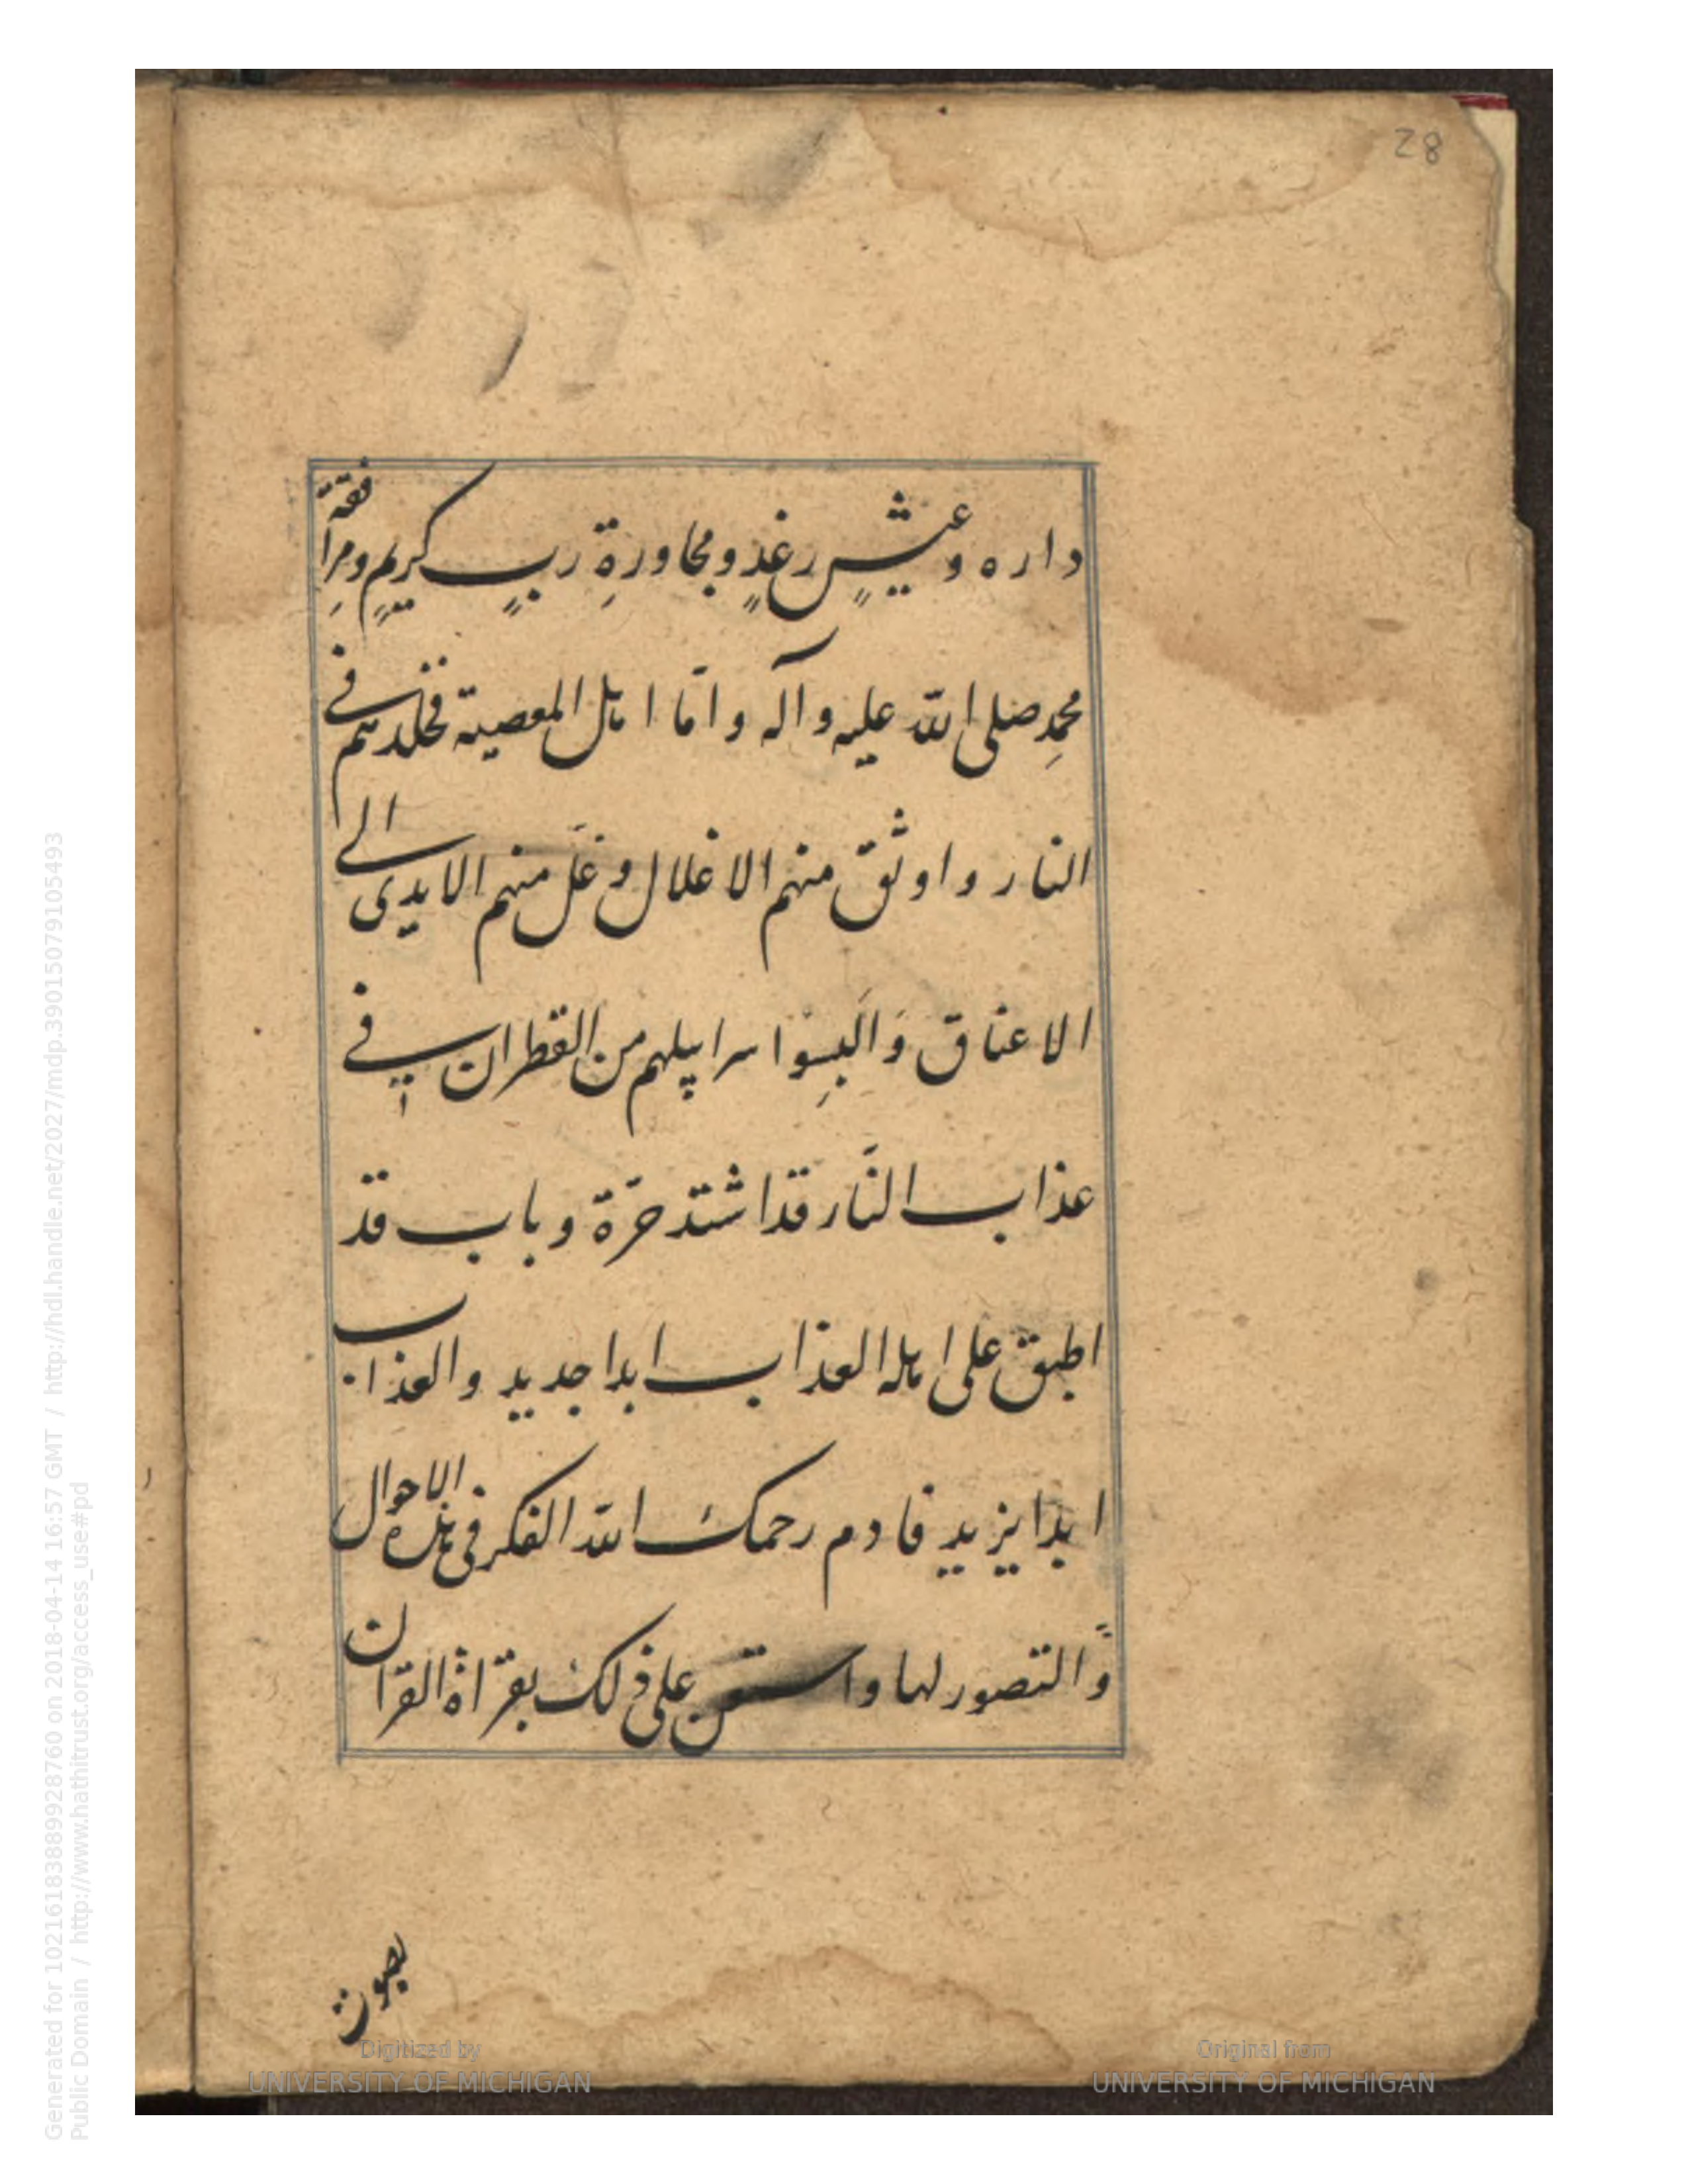 28
داره وعيشٍ رغدٍ ومجاورةِ ربٍ كريمٍ ومرافقة
محمدِ صلى الله عليه وآله واما اهل المعصية فخلدهم فى
النار واوثق منهم الاغلال وغلّ منهم الايدى الى
الاعناق وَاَلبِسوا سرابيلهم من القطران فى
عذاب النّار قد اشتد حرّة وباب قد
اطبق على اهله العذاب ابدا جديد والعذاب
ابدا يزيد فادم رحمك الله الفكر فى هذه الاحوال
والتصور لها واستعن على ذلك بقراة القران
بصوت
Digitized by
UNIVERSITY OF MICHIGAN
Original from
UNIVERSITY OF MICHIGAN
Generated for 10216183889928760 on 2018-04-14 16:57 GMT / http://hdl.handle.net/2027/mdp.39015079105493
Public Domain / http://www.hathitrust.org/access_use#pd